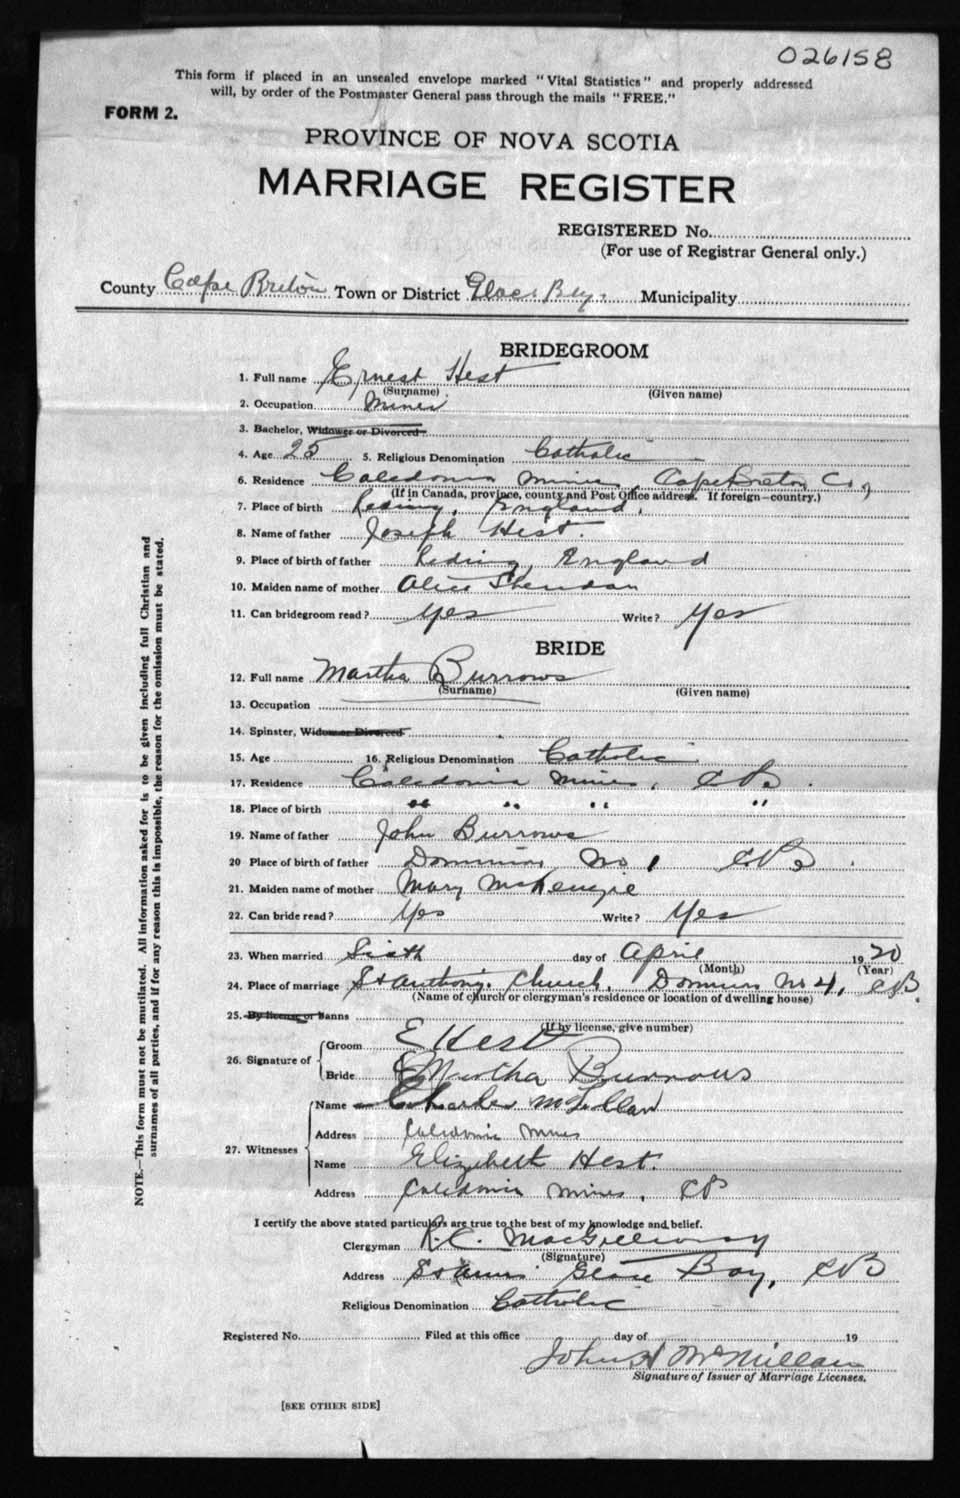 026158
This form if placed in an unsealed envelope marked "Vital Statistics" and properly addressed
will, by order of the Postmaster General pass through the mails "FREE."
FORM 2.
PROVINCE OF NOVA SCOTIA
MARRIAGE REGISTER
REGISTERED No.
(For use of Registrar General only.)
County Cape Breton Town or District Glace Bay. Municipality
BRIDEGROOM
1. Full name Ernest Hest
(Surname) (Given name)
2. Occupation Miner
3. Bachelor, Widower or Divorced
4. Age 25 5. Religious Denomination Catholic
6. Residence Caledonia Mines, Cape Breton Co,
(If in Canada, province, county and Post Office address. If foreign—country.)
7. Place of birth Reding, England,
8. Name of father Joseph Hest.
9. Place of birth of father Reding, England
10. Maiden name of mother Alice Sheridan
11. Can bridegroom read? yes Write? Yes
BRIDE
12. Full name Martha Burrows
(Surname) (Given name)
13. Occupation
14. Spinster, Widow or Divorced
15. Age 16. Religious Denomination Catholic
17. Residence Caledonia Mines, CB.
18. Place of birth " " " "
19. Name of father John Burrows
20 Place of birth of father Dominion No 1 CB.
21. Maiden name of mother Mary McKenzie
22. Can bride read? Yes Write? Yes
23. When married Sixth day of April 1920
(Month) (Year)
24. Place of marriage St Anthony. Church, Dominion No 4, CB.
(Name of church or clergyman's residence or location of dwelling house)
25. By license or banns
(If by license, give number)
26. Signature of Groom E Hest
Bride Martha Burrows
27. Witnesses Name Charles McLellan
Address Caledonia Mines
Name Elizabeth Hest.
Address Caledonia Mines, CB
I certify the above stated particulars are true to the best of my knowledge and belief.
Clergyman R. C. MacGillivray
(Signature)
Address St Anns Glace Bay, CB
Religious Denomination Catholic
Registered No. Filed at this office day of 19
John A McMillan
Signature of Issuer of Marriage Licenses.
[SEE OTHER SIDE]
NOTE.—This form must not be mutilated. All information asked for is to be given including full Christian and
surnames of all parties, and if for any reason this is impossible, the reason for the omission must be stated.